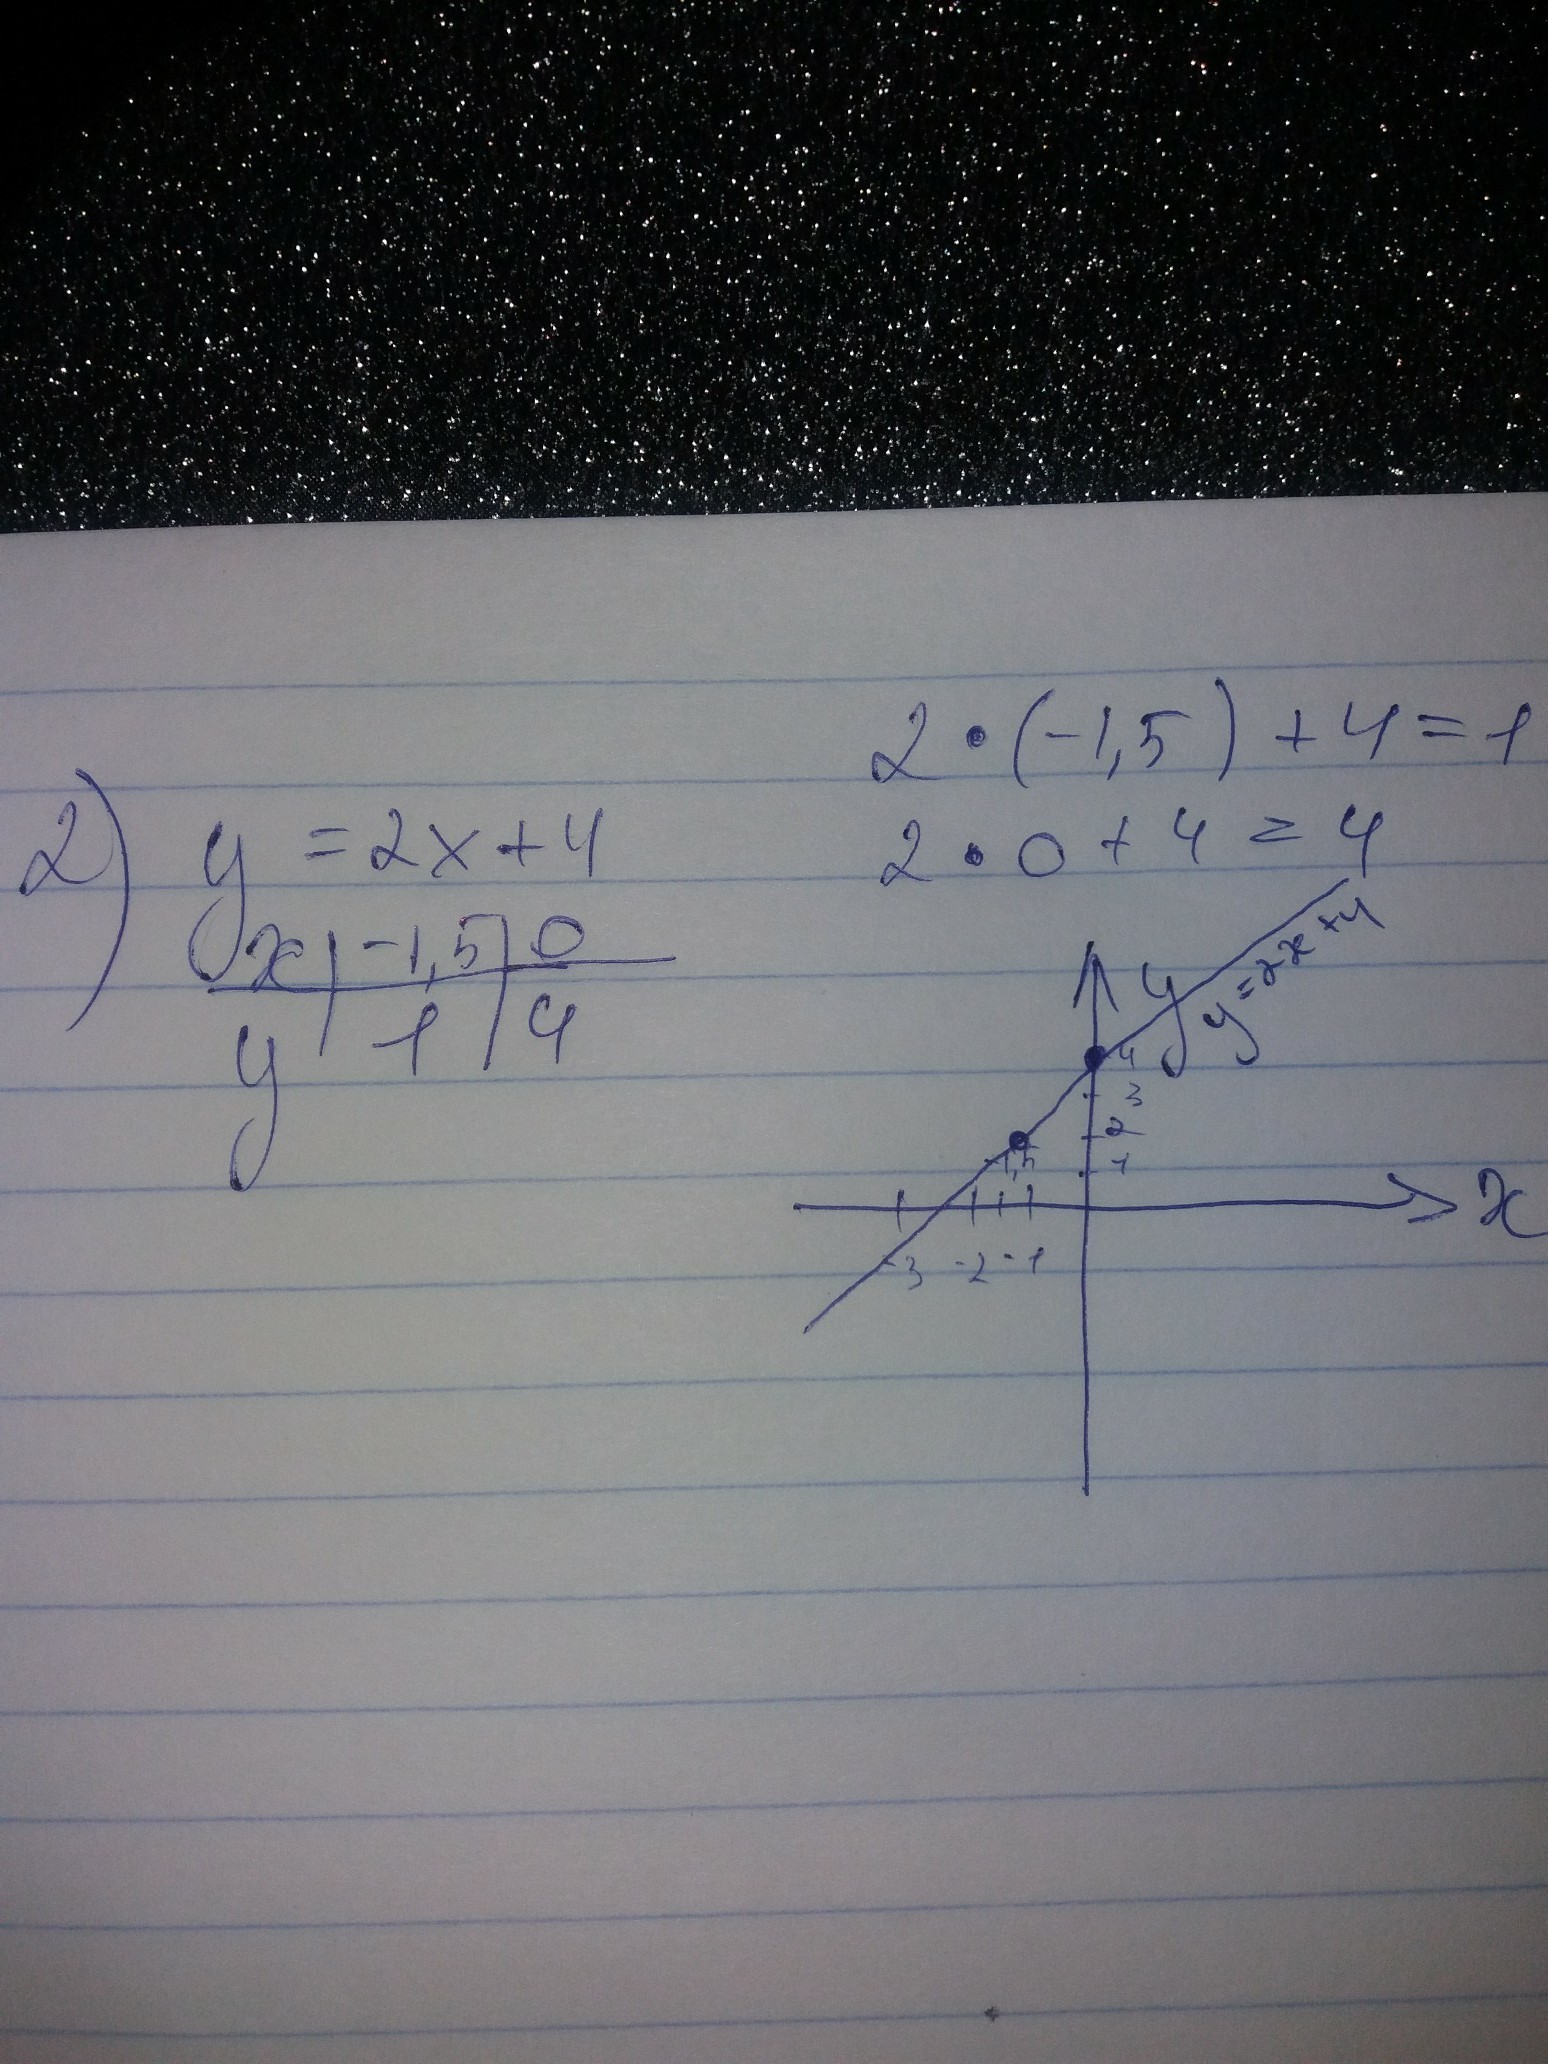 2 • (-1,5) + 4 = 1
2) y = 2x + 4
2 • 0 + 4 = 4
x | -1,5 | 0
y | 1 | 4
y
y = 2x + 4
4
3
2
-1,5
1
x
-3 -2 -1